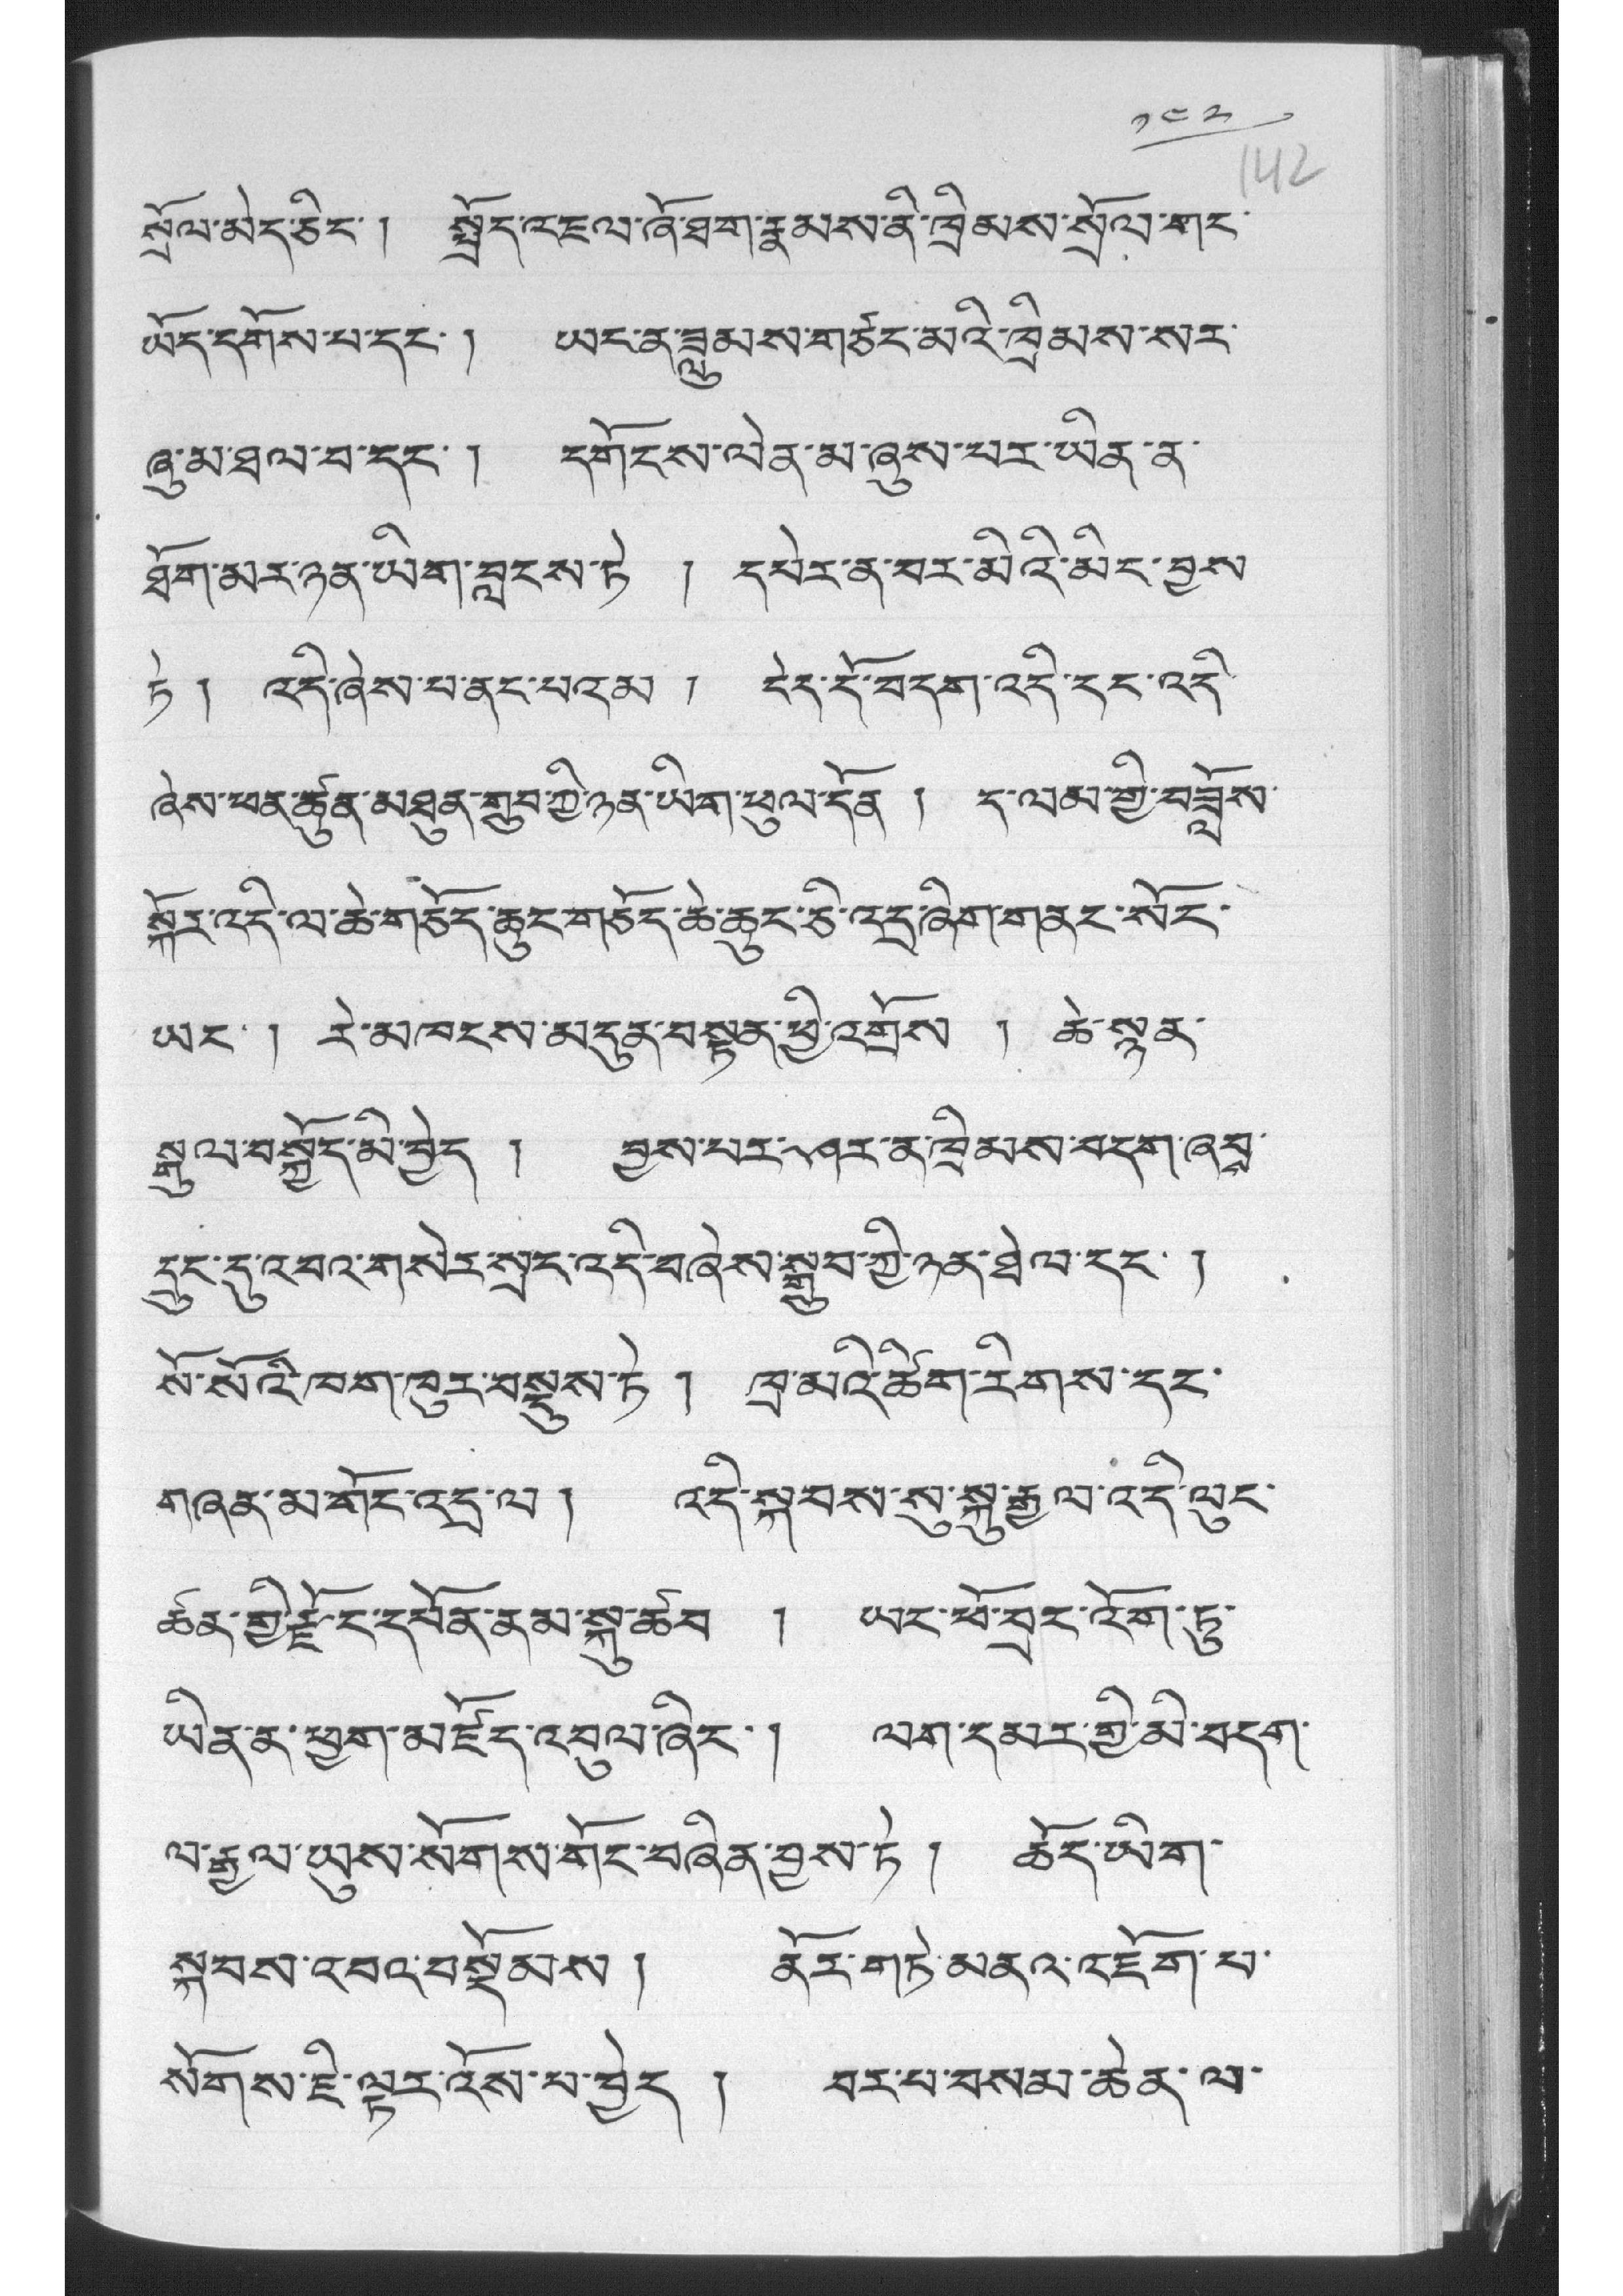 ༡༤༢
142
སྲོལ་མེད་ཅིང་། སྤྲོད་འཇལ་ཞོ་ཐག་རྣམས་ནི་ཁྲིམས་སྲོལ་གང་
ཡོད་དགོས་པ་དང་། ཡང་ན་ཟླུམས་གཙང་མའི་ཁྲིམས་སར་
ཞུ་མ་ཐལ་བ་དང་། དགོངས་ལེན་མ་ཞུས་པར་ཡིན་ན་
ཐོག་མར་ཉན་ཡིག་བླངས་ཏེ། དཔེར་ན་བར་མིའི་མིང་བྱས
ཏེ། འདི་ཞེས་པ་ནང་པའམ། ངེད་དོ་བདག་འདི་དང་འདི
ཞེས་ཕན་ཚུན་མཐུན་གྲུབ་ཀྱི་ཉན་ཡིག་ཕུལ་དོན། ད་ལམ་གྱི་བཟློས་
སྐོར་འདི་ལ་ཆེ་གཅོད་ཆུང་གཅོད་ཆེ་ཆུང་ཅི་འདྲ་ཞིག་གནང་སོང་
ཡང་། རེ་མ་ཁངས་མདུན་བསྟན་ཕྱི་འགྲོས། ཆེ་སྙན་
སྒུལ་བསྐྱོད་མི་བྱེད། བྱས་པར་ཤར་ན་ཁྲིམས་བདག་ཞབྲ་
དྲུང་དུ་འབའ་གསེར་སྲང་འདི་བཞེས་སྒྲུབ་ཀྱི་ཉན་ཐེལ་དང་།
སོ་སོའི་ཁག་ཁུར་བསྡུས་ཏེ། ཁྲ་མའི་ཚིག་རིགས་དང་
གཞན་མ་གོང་འདྲ་ལ། འདི་སྐབས་སུ་སྐུ་རྒྱལ་འདི་ལུང་
ཚན་གྱི་རྫོང་དཔོན་ནམ་སྐུ་ཚབ། ཡང་ཕོ་བྲང་འོག་ཏུ་
ཡིན་ན་ཕྱག་མཛོད་འབུལ་ཞིང་། ལག་དམར་གྱི་མི་བདག་
ལ་རྒྱལ་ཡུས་སོགས་གོང་བཞིན་བྱས་ཏེ། ཆོད་ཡིག་
སྐབས་འབའ་བསྡོམས། ནོར་གཏེ་མནའ་འཇོག་པ་
སོགས་ཇི་ལྟར་འོས་པ་བྱེད། བར་པ་བསམ་ཆེན་ལ་